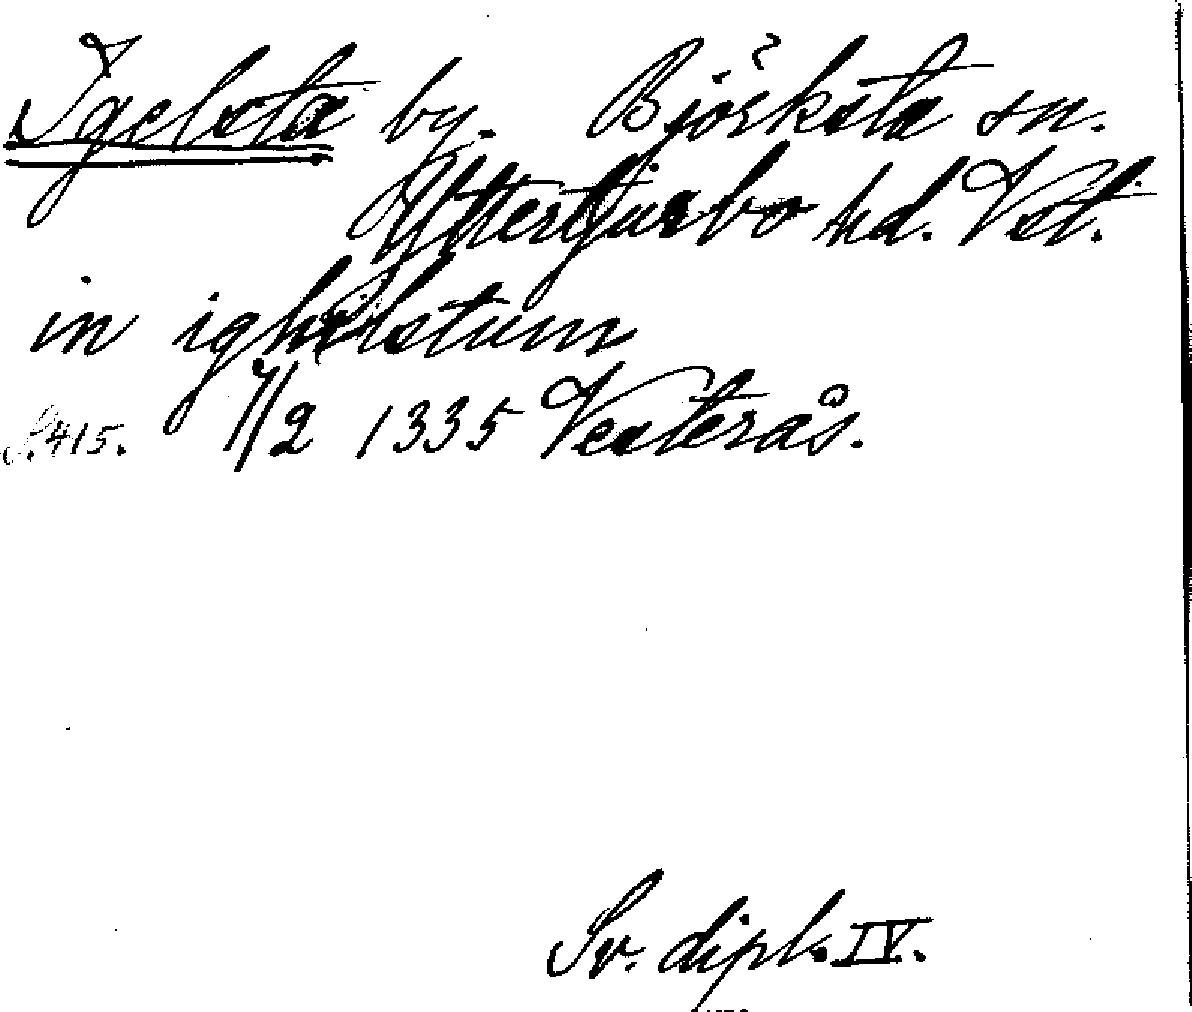 Igelsta by. Björksta sn.
Yttertjurbo hd. Vst.
in ighilstum
S. 415. 7/2 1335 Vesterås.
Sv. dipl. IV.